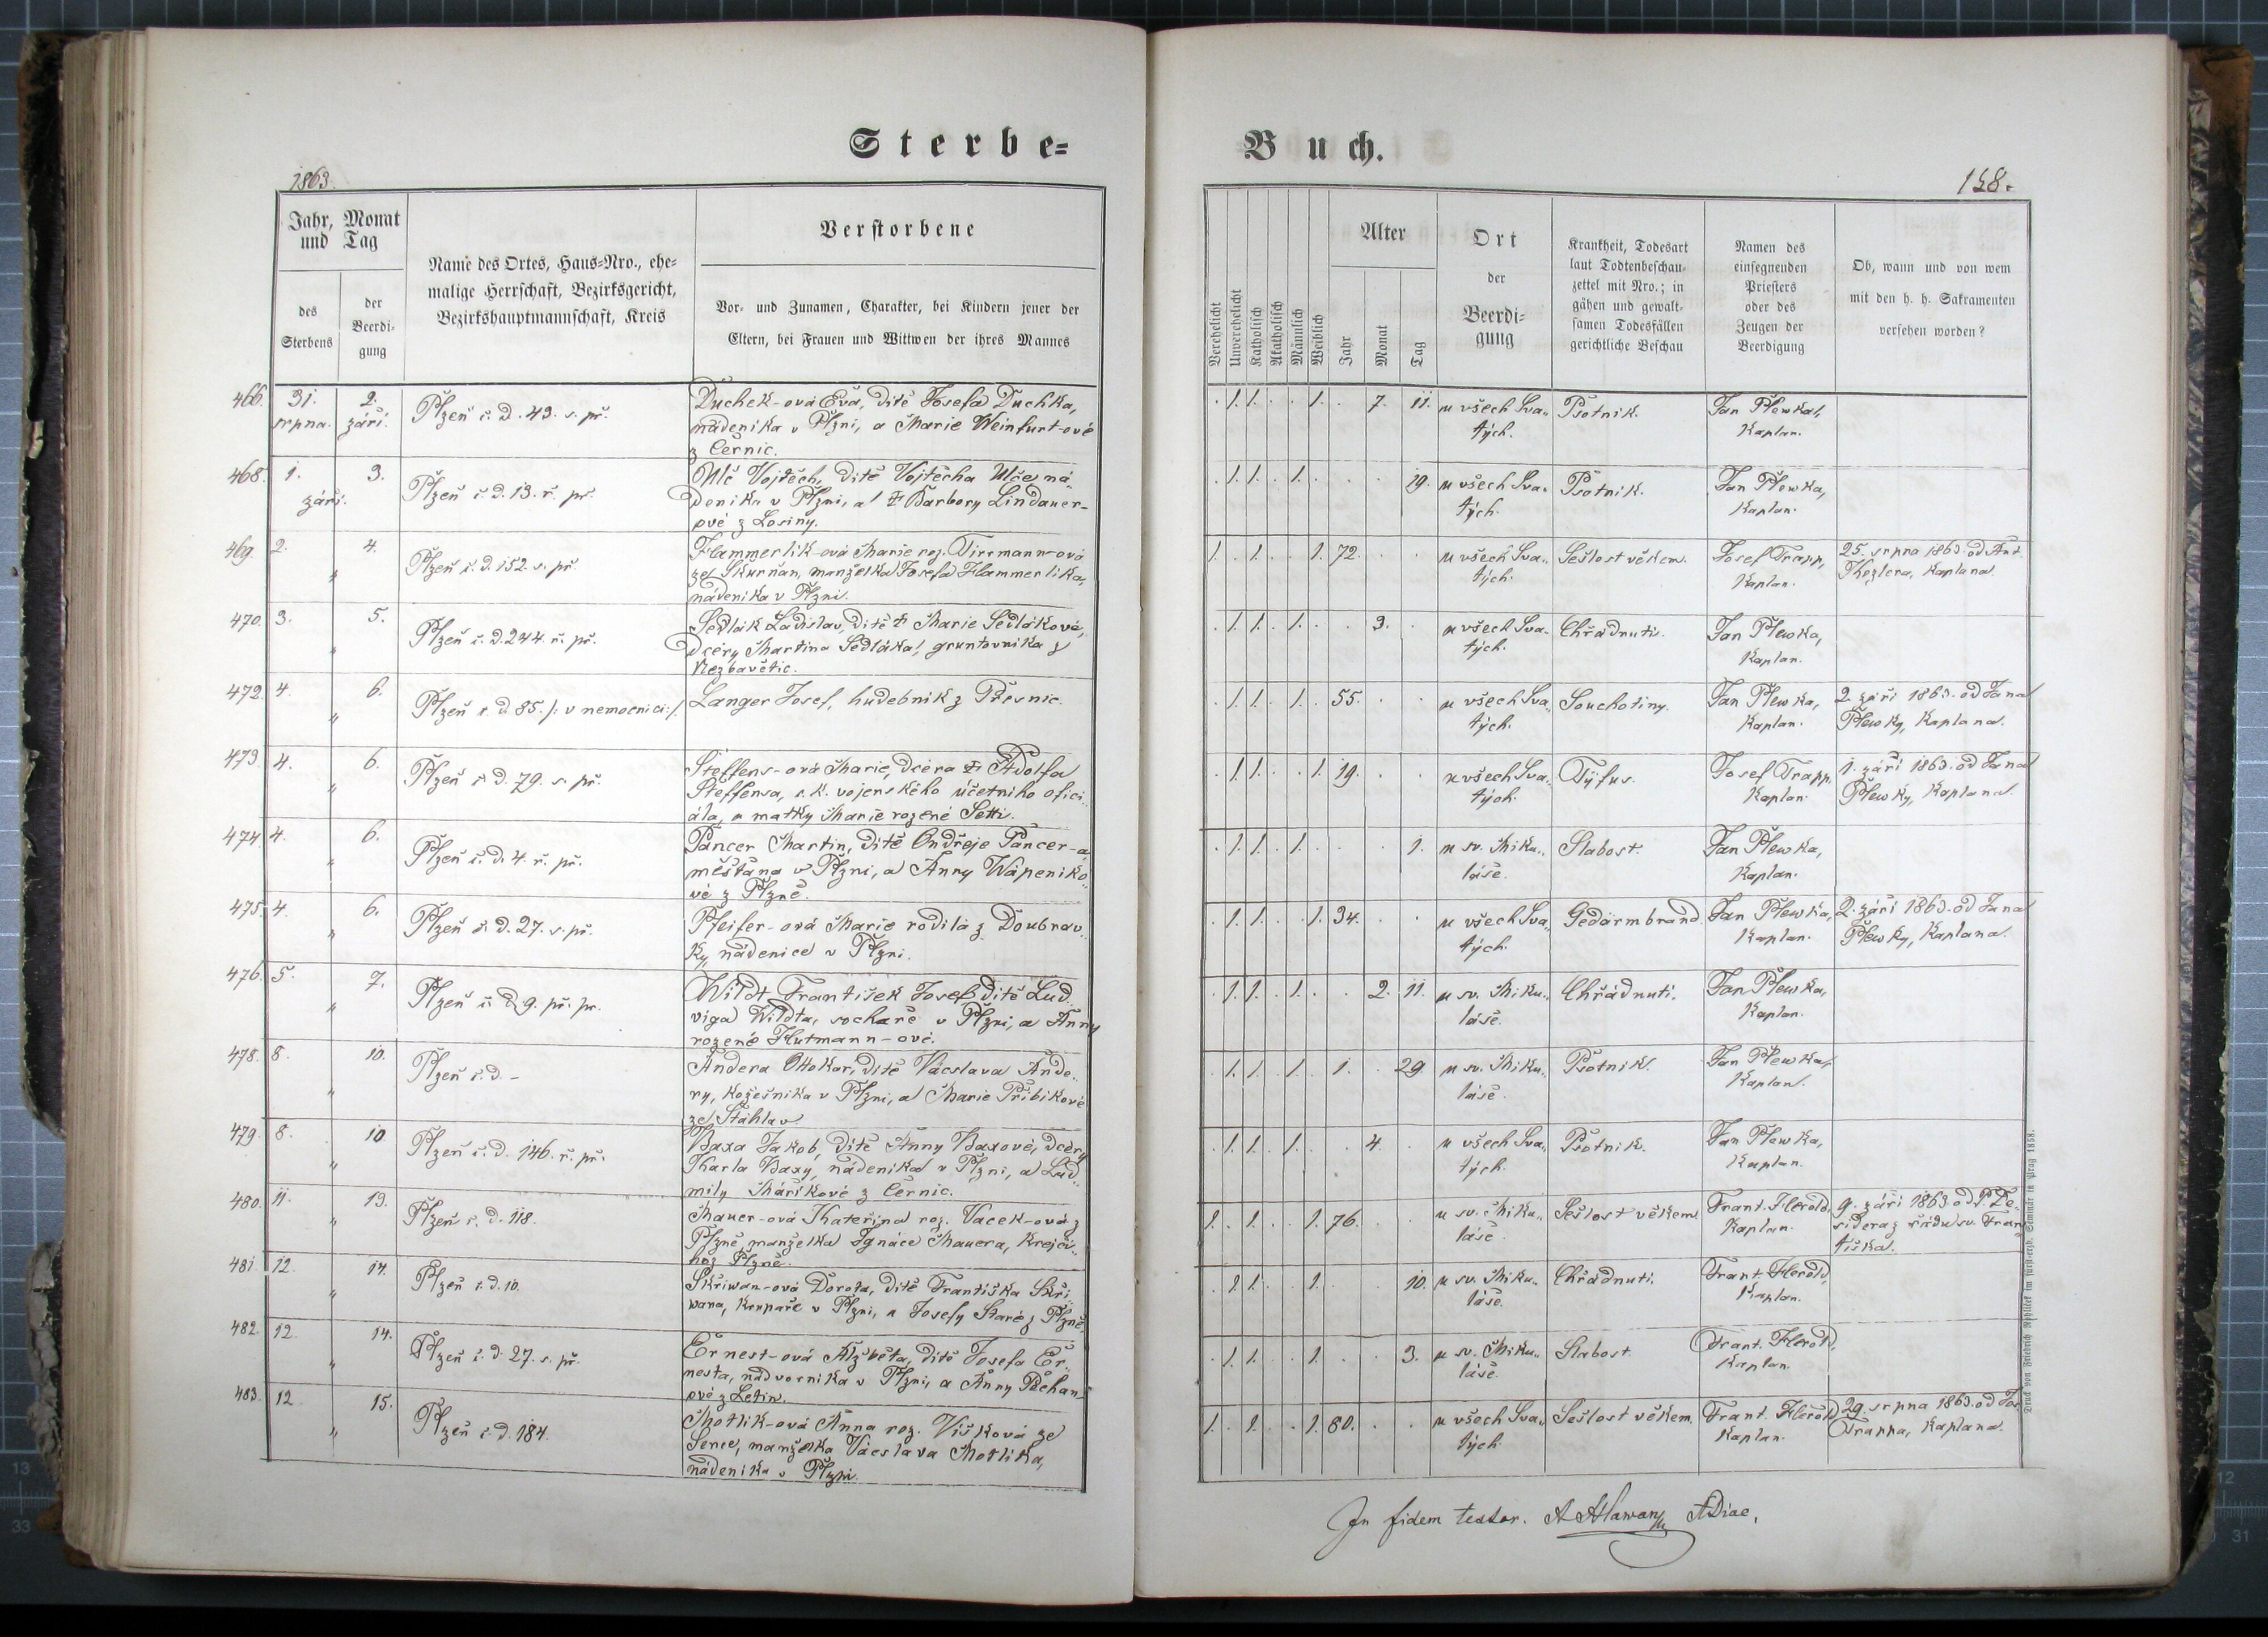 Sterbe-
1863.
Jahr, Monat und Tag
des Sterbens
der Beerdigung
Name des Ortes, Haus-Nro., ehemalige Herrschaft, Bezirksgericht, Bezirkshauptmannschaft, Kreis
Verstorbene
Vor- und Zunamen, Charakter, bei Kindern jener der
Eltern, bei Frauen und Wittwen der ihres Mannes
466. 31. srpna. 2. září. Plzeň č. d. 43. s. př.
Duchek-ová Eva, dítě Josefa Duchka,
nádeníka v Plzni, a Marie Weinfurt-ové
z Černic.
468. 1. září. 3. Plzeň č. d. 13. ř. př.
Ulč Vojtěch, dítě Vojtěcha Ulče, ná-
deníka v Plzni, a Barbory Lindauer-
ové z Losiny.
469. 2. " 4. Plzeň č. d. 152. s. př.
Hammerlik-ová Marie roz. Tirrmann-ová
ze Skurňan, manželka Josefa Hammerlika,
nádeníka v Plzni.
470. 3. " 5. Plzeň č. d. 244. ř. př.
Sedlák Ladislav, dítě Marie Sedlákové,
dcery Martina Sedláka, gruntovníka z
Nezbavětic.
472. 4. " 6. Plzeň č. d. 85. /: v nemocnici :/.
Langer Josef, hudebník z Přesnic.
473. 4. " 6. Plzeň č. d. 79. s. př.
Steffens-ová Marie, dcera Adolfa
Steffensa, c. k. vojenského účetního ofici-
ála, a matky Marie rozené Setti.
474. 4. " 6. Plzeň č. d. 4. ř. př.
Pancer Martin, dítě Ondřeje Pancer-a,
měšťana v Plzni, a Anny Wápeníko-
vé z Plzně.
475. 4. " 6. Plzeň č. d. 27. s. př.
Pfeifer-ová Marie rodilá z Doubrav-
ky, nádenice v Plzni.
476. 5. " 7. Plzeň č. d. 9. př. pr.
Wildt František Josef dítě Lud-
viga Wildta, sochaře v Plzni, a Anny
rozené Hutmann-ové.
478. 8. " 10. Plzeň č. d. -
Andera Ottokar, dítě Václava Ande-
ry, kožešníka v Plzni, a Marie Přibíkové
ze Štáhlav.
479. 8. " 10 Plzeň č. d. 146. ř. př.
Baxa Jakob, dítě Anny Baxové, dcery
Karla Baxy, nádeníka v Plzni, a Lud-
mily Maříkové z Černic.
480. 11. " 13. Plzeň č. d. 118.
Mauer-ová Kateřina roz. Vacek-ová z
Plzně, manželka Ignáce Mauera, krejčí-
ho z Plzně.
481. 12. " 14. Plzeň č. d. 10.
Skřiwan-ová Dorota, dítě Františka Skři-
wana, krupaře v Plzni, a Josefy Staré z Plzně.
482. 12. " 14. Plzeň č. d. 27. s. př.
Ernest-ová Alžběta, dítě Josefa Er-
nesta, nádvorníka v Plzni, a Anny Pěchan-
ové z Letin.
483. 12. " 15. Plzeň č. d. 184.
Motlik-ová Anna roz. Víšková ze
Sence, manželka Václava Motlika,
nádeníka v Plzni.
Buch.
158.
Verehelicht
Unverehelicht
Katholisch
Akatholisch
Männlich
Weiblich
Alter
Jahr
Monat
Tag
Ort der Beerdigung
Krankheit, Todesart laut Todtenbeschauzettel mit Nro.; in gähen und gewaltsamen Todesfällen gerichtliche Beschau
Namen des einsegnenden Priesters oder des Zeugen der Beerdigung
Ob, wann und von wem mit den h. h. Sakramenten versehen worden?
. 1. 1. . . 1. . 7. 11. u všech Svatých. Psotník. Jan Plewka, Kaplan.
. 1. 1. . 1. . . . 19. u všech Svatých. Psotník. Jan Plewka, Kaplan.
1. . 1. . . 1. 72. . . u všech Svatých. Sešlost věkem. Josef Trapp, Kaplan. 25. srpna 1863. od Ant. Kezlera, Kaplana.
. 1. 1. . 1. . . 3. . u všech Svatých. Chřádnutí. Jan Plewka, Kaplan.
. 1. 1. . 1. . 55. . . u všech Svatých. Souchotiny. Jan Plewka, Kaplan. 2. září 1863. od Jana Plewky, Kaplana.
. 1. 1. . . 1. 19. . . u všech Svatých. Týfus. Josef Trapp, Kaplan. 1. září 1863. od Jana Plewky, Kaplana.
. 1. 1. . 1. . . . 1. u sv. Mikuláše. Slabost. Jan Plewka, Kaplan.
. 1. 1. . . 1. 34. . . u všech Svatých. Gedärmbrand. Jan Plewka, Kaplan. 2. září 1863. od Jana Plewky, Kaplana.
. 1. 1. . 1. . . 2. 11. u sv. Mikuláše. Chřádnutí. Jan Plewka, Kaplan.
. 1. 1. . 1. . 1. . 29. u sv. Mikuláše. Psotník. Jan Plewka, Kaplan.
. 1. 1. . 1. . . 4. . u všech Svatých. Psotník. Jan Plewka, Kaplan.
1. . 1. . . 1. 76. . . u sv. Mikuláše. Sešlost věkem. Frant. Herold, Kaplan. 9. září 1863. od P. Desidera z řádu sv. Františka.
. 1. 1. . . 1. . . 10. u sv. Mikuláše. Chřádnutí. Frant. Herold, Kaplan.
. 1. 1. . . 1. . . 3. u sv. Mikuláše. Slabost. Frant. Herold, Kaplan.
1. . 1. . . 1. 80. . . u všech Svatých. Sešlost věkem. Frant. Herold, Kaplan. 29. srpna 1863. od Jos. Trappa, Kaplana.
In fidem testor. A Hlawan ADiac.
Druck von Friedrich im fürst-erzb. Seminär in Prag 1858.
13
33
12
31